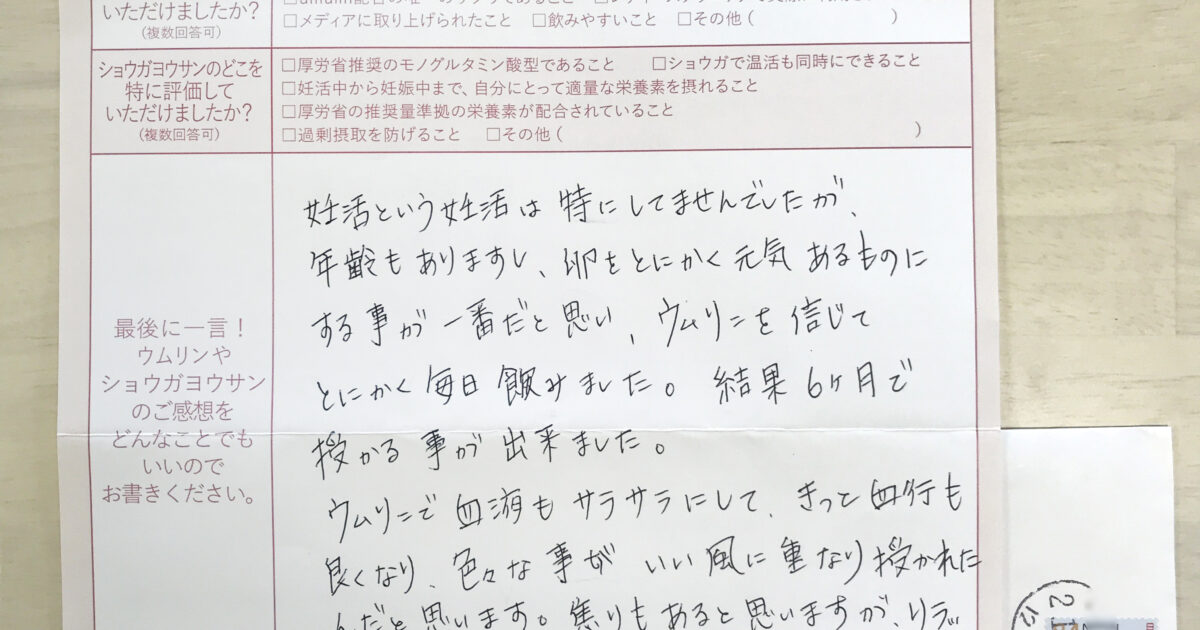 いただけましたか?
(複数回答可)
□メディアに取り上げられたこと □飲みやすいこと □その他 ( )
ショウガヨウサンのどこを
特に評価して
いただけましたか?
(複数回答可)
□厚労省推奨のモノグルタミン酸型であること □ショウガで温活も同時にできること
□妊活中から妊娠中まで、自分にとって適量な栄養素を摂れること
□厚労省の推奨量準拠の栄養素が配合されていること
□過剰摂取を防げること □その他 ( )
最後に一言!
ウムリンや
ショウガヨウサン
のご感想を
どんなことでも
いいので
お書きください。
妊活という妊活は特にしてませんでしたが、
年齢もありますし、卵をとにかく元気あるものに
する事が一番だと思い、ウムリンを信じて
とにかく毎日飲みました。結果6ヶ月で
授かる事が出来ました。
ウムリンで血液もサラサラにして、きっと血行も
良くなり、色々な事がいい風に重なり授かれた
んだと思います。焦りもあると思いますが、リラッ